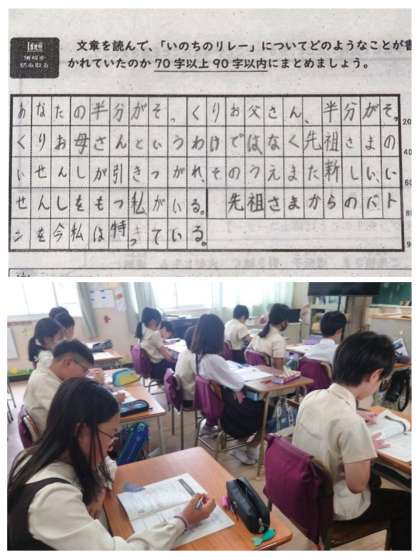 文章を読んで、「いのちのリレー」についてどのようなことが書
かれていたのか 70字以上90字以内にまとめましょう。
あなたの半分がそっくりお父さん、半分がそっ
20
くりお母さんというわけではなく先祖さまの
40
いでんしが引きつがれ、そのうえまた新しいい
60
でんしをもつ私がいる。 先祖さまからのバト
8
ンを今私は持っている。
9